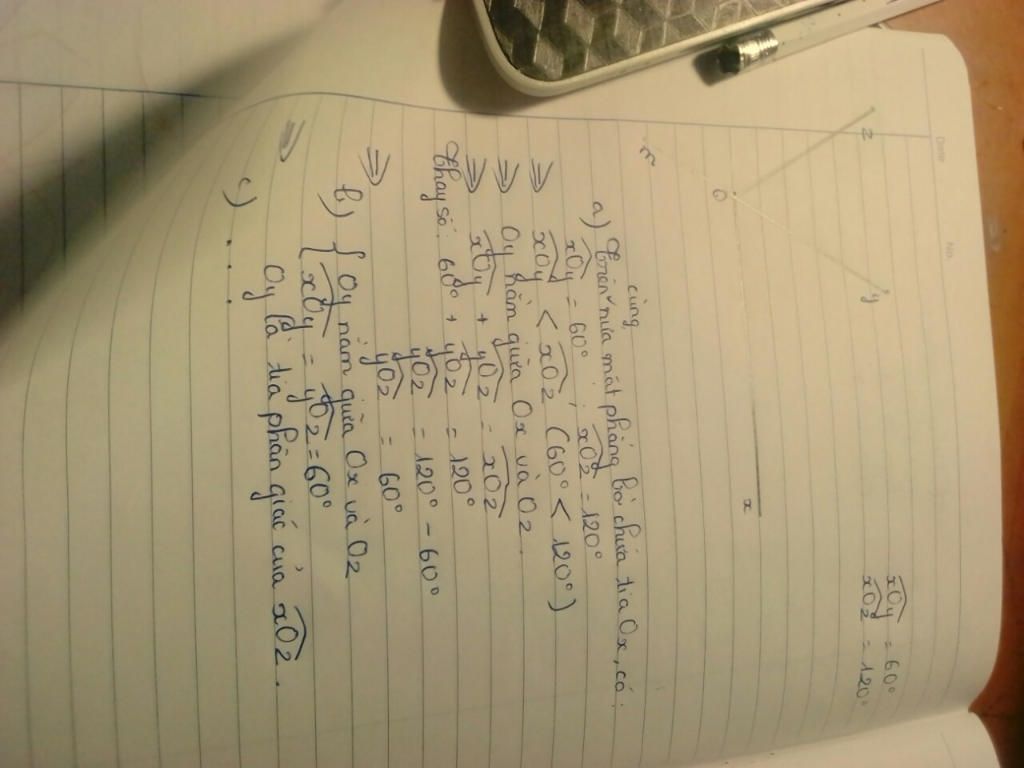 Date
No.
xOy = 60°
xOz = 120°
z
y
O
x
m
a) Trên cùng nửa mặt phẳng bờ chứa tia Ox, có:
xOy = 60° ; xOz = 120°
=> xOy < xOz (60° < 120°)
=> Oy nằm giữa Ox và Oz.
=> xOy + yOz = xOz
Thay số: 60° + yOz = 120°
yOz = 120° - 60°
=> yOz = 60°
b) { Oy nằm giữa Ox và Oz
{ xOy = yOz = 60°
=> Oy là tia phân giác của xOz.
c) . . .